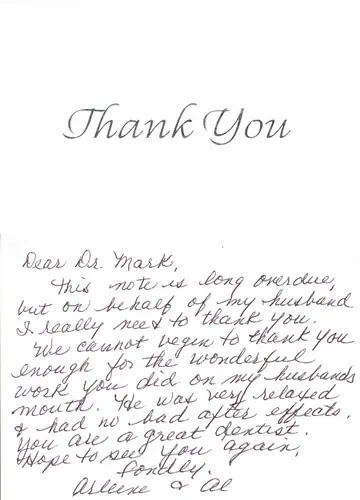 Thank You
Dear Dr. Mark,
This note is long overdue,
but on behalf of my husband
I really need to thank you.
We cannot begin to thank you
enough for the wonderful
work you did on my husbands
mouth. He was very relaxed
& had no bad after effects.
You are a great dentist.
Hope to see you again,
Fondly,
Arlene & Al